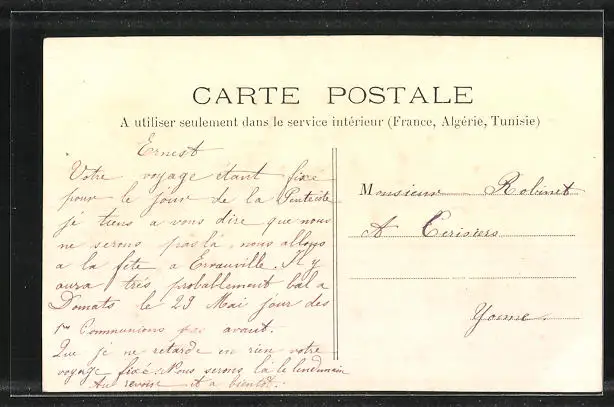 CARTE POSTALE
A utiliser seulement dans le service intérieur (France, Algérie, Tunisie)
Ernest
Votre voyage étant fixé
pour le jour de la Pentecôte
je tiens a vous dire que nous
ne serons pas là, nous allons
a la fête a Ervauville. Il y
aura très probablement bal a
Domats le 29 Mai jour des
1res Communions pas avant.
Que je ne retarde en rien votre
voyage fixé. Nous serons là le lendemain
Au revoir et a bientôt.
Monsieur Robinet
A Cerisiers
Yonne.